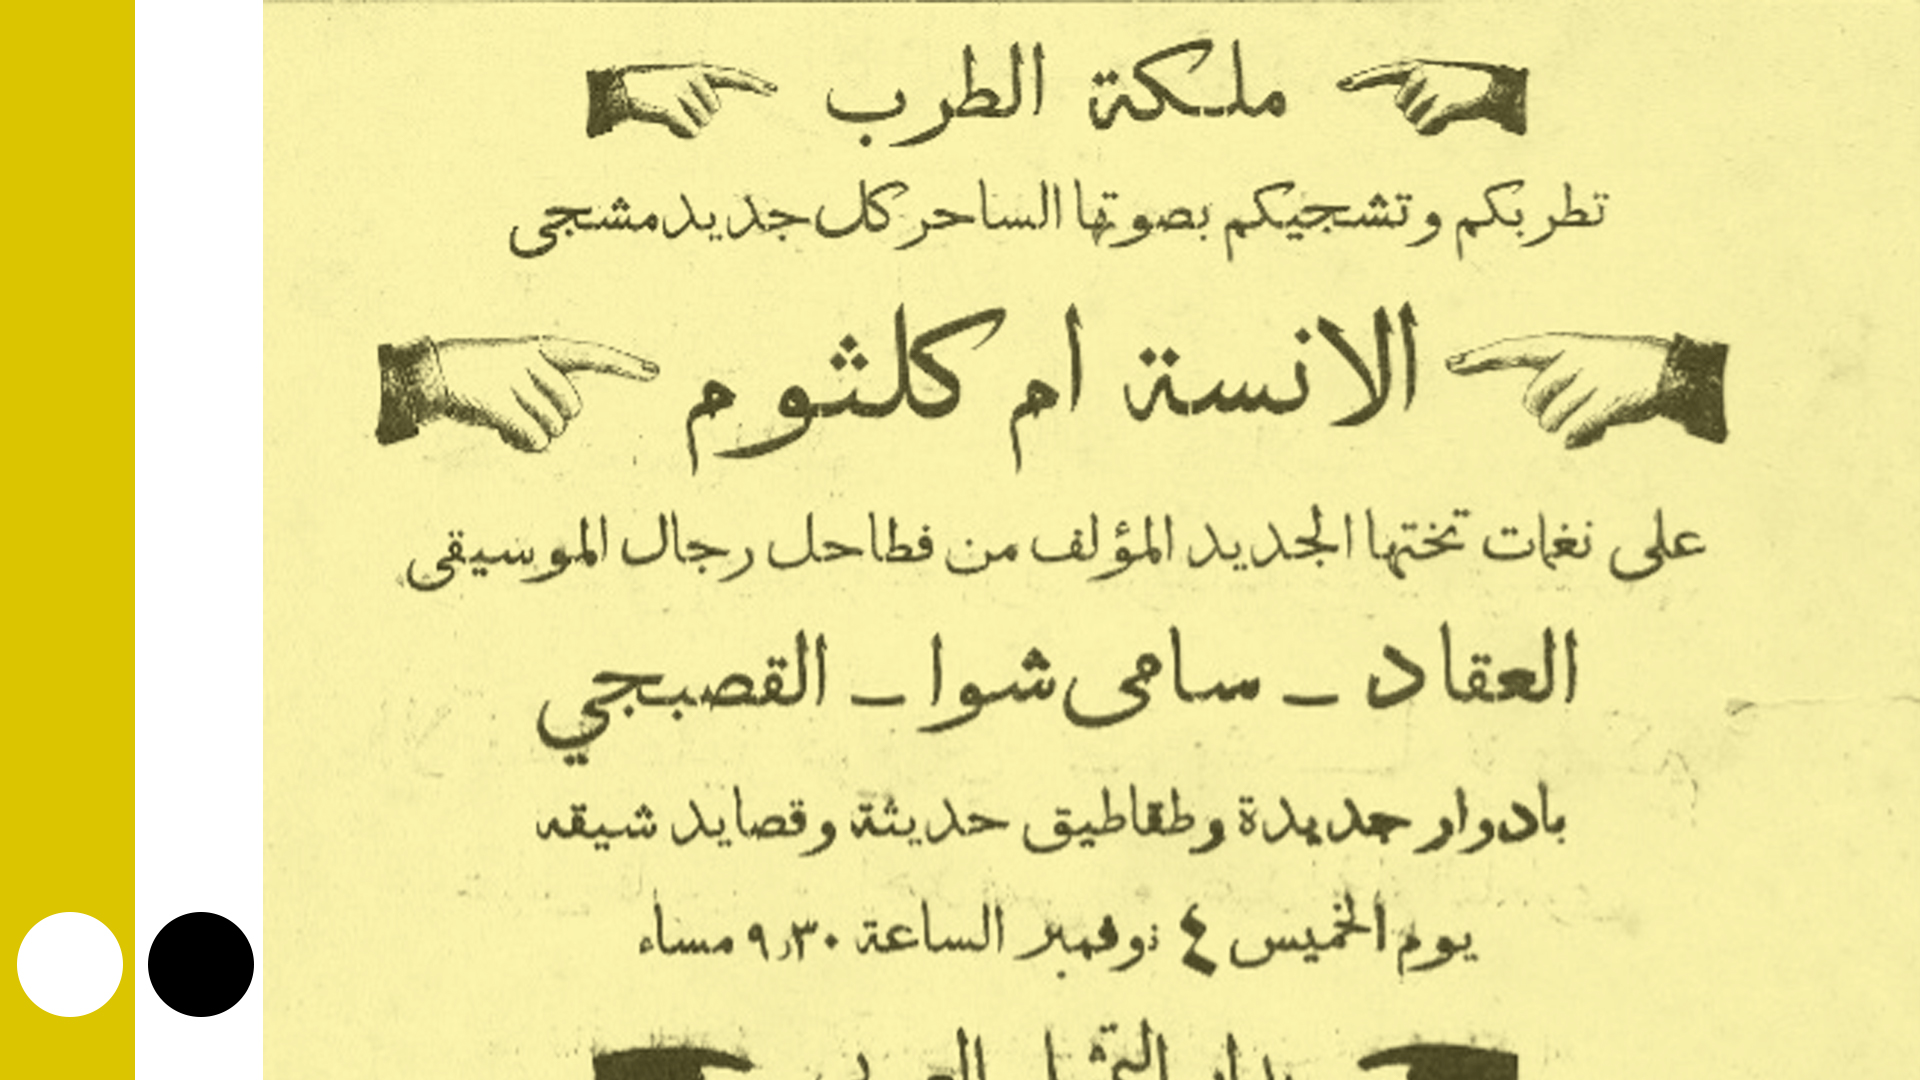 ملكة الطرب
تطربكم وتشجيكم بصوتها الساحر كل جديد مشجى
الانسة ام كلثوم
على نغمات تختها الجديد المؤلف من فطاحل رجال الموسيقى
العقاد – سامى شوا – القصبجي
بادوار جديدة وطقاطيق حديثة وقصايد شيقه
يوم الخميس ٤ نوفمبر الساعة ٩٫٣٠ مساء
بدار التمثيل العربى